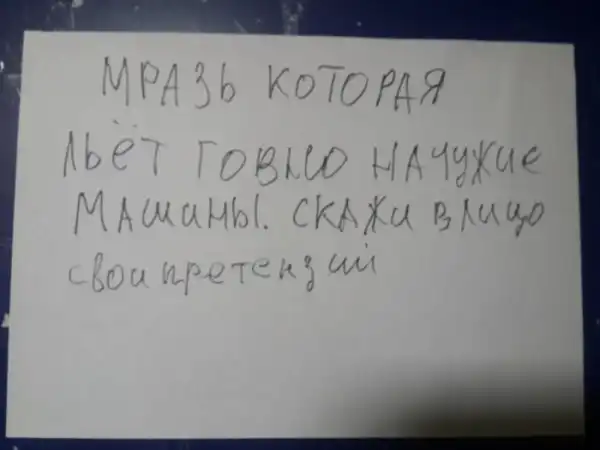 МРАЗЬ КОТОРАЯ
ЛЬЁТ ГОВНО НА ЧУЖИЕ
МАШИНЫ. СКАЖИ В ЛИЦО
СВОИ ПРЕТЕНЗИЙ